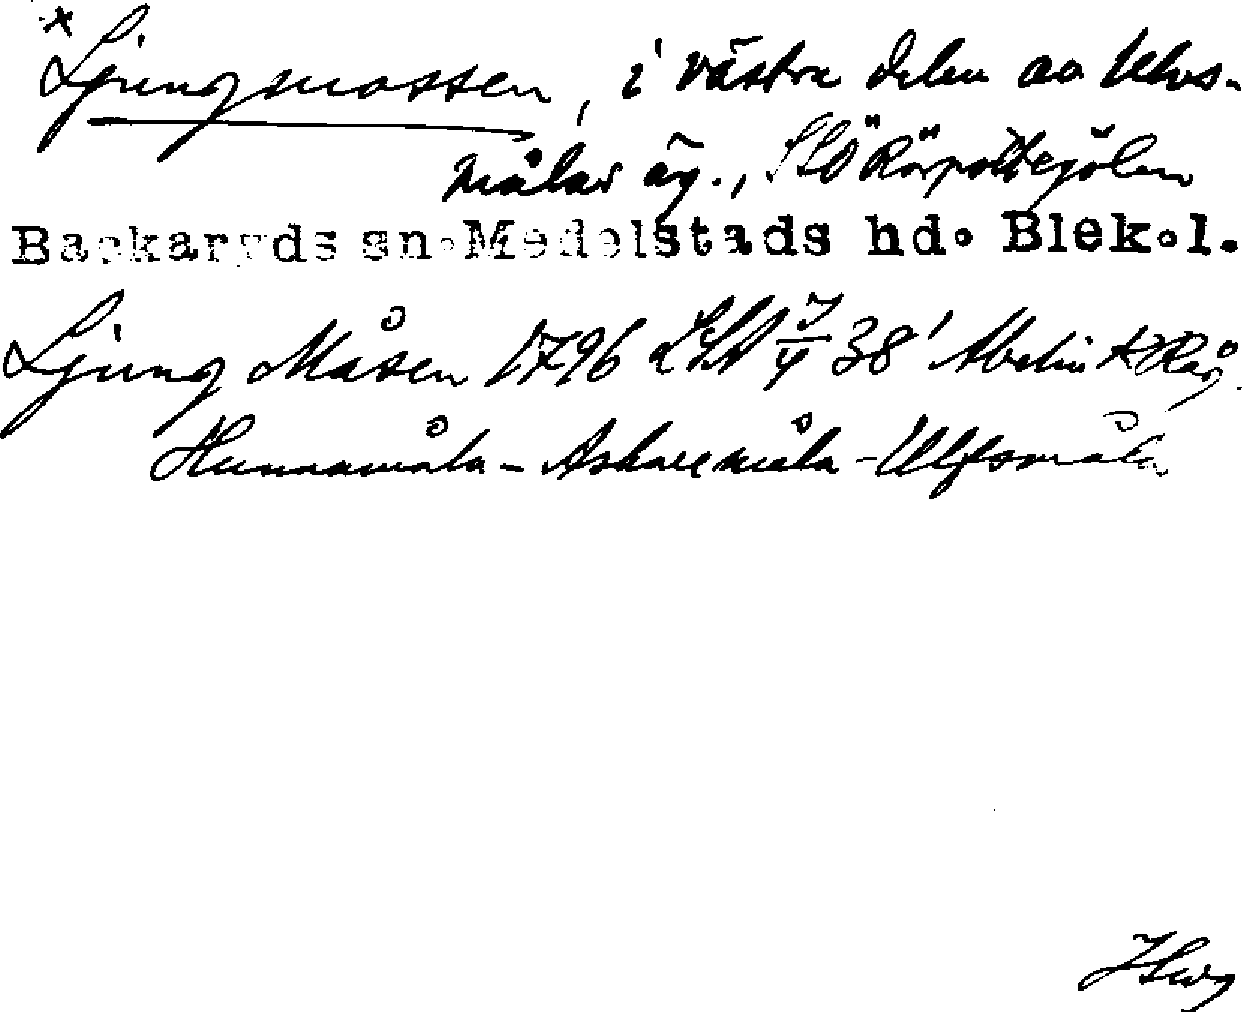 * Ljungmossen, i västra delen av Ulvs-
målas äg., SSO Rörpottegölen
Backaryds sn. Medelstads hd. Blek. l.
Ljung Måsen 1796 LSA 7/V 38'
Hunnamåla - Askaremåla - Ulfsmåla